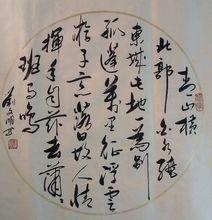 青山橫
北郭白水繞
東城此地一為別
孤蓬萬里征浮雲
游子意落日故人情
揮手自茲去蕭蕭
班馬鳴